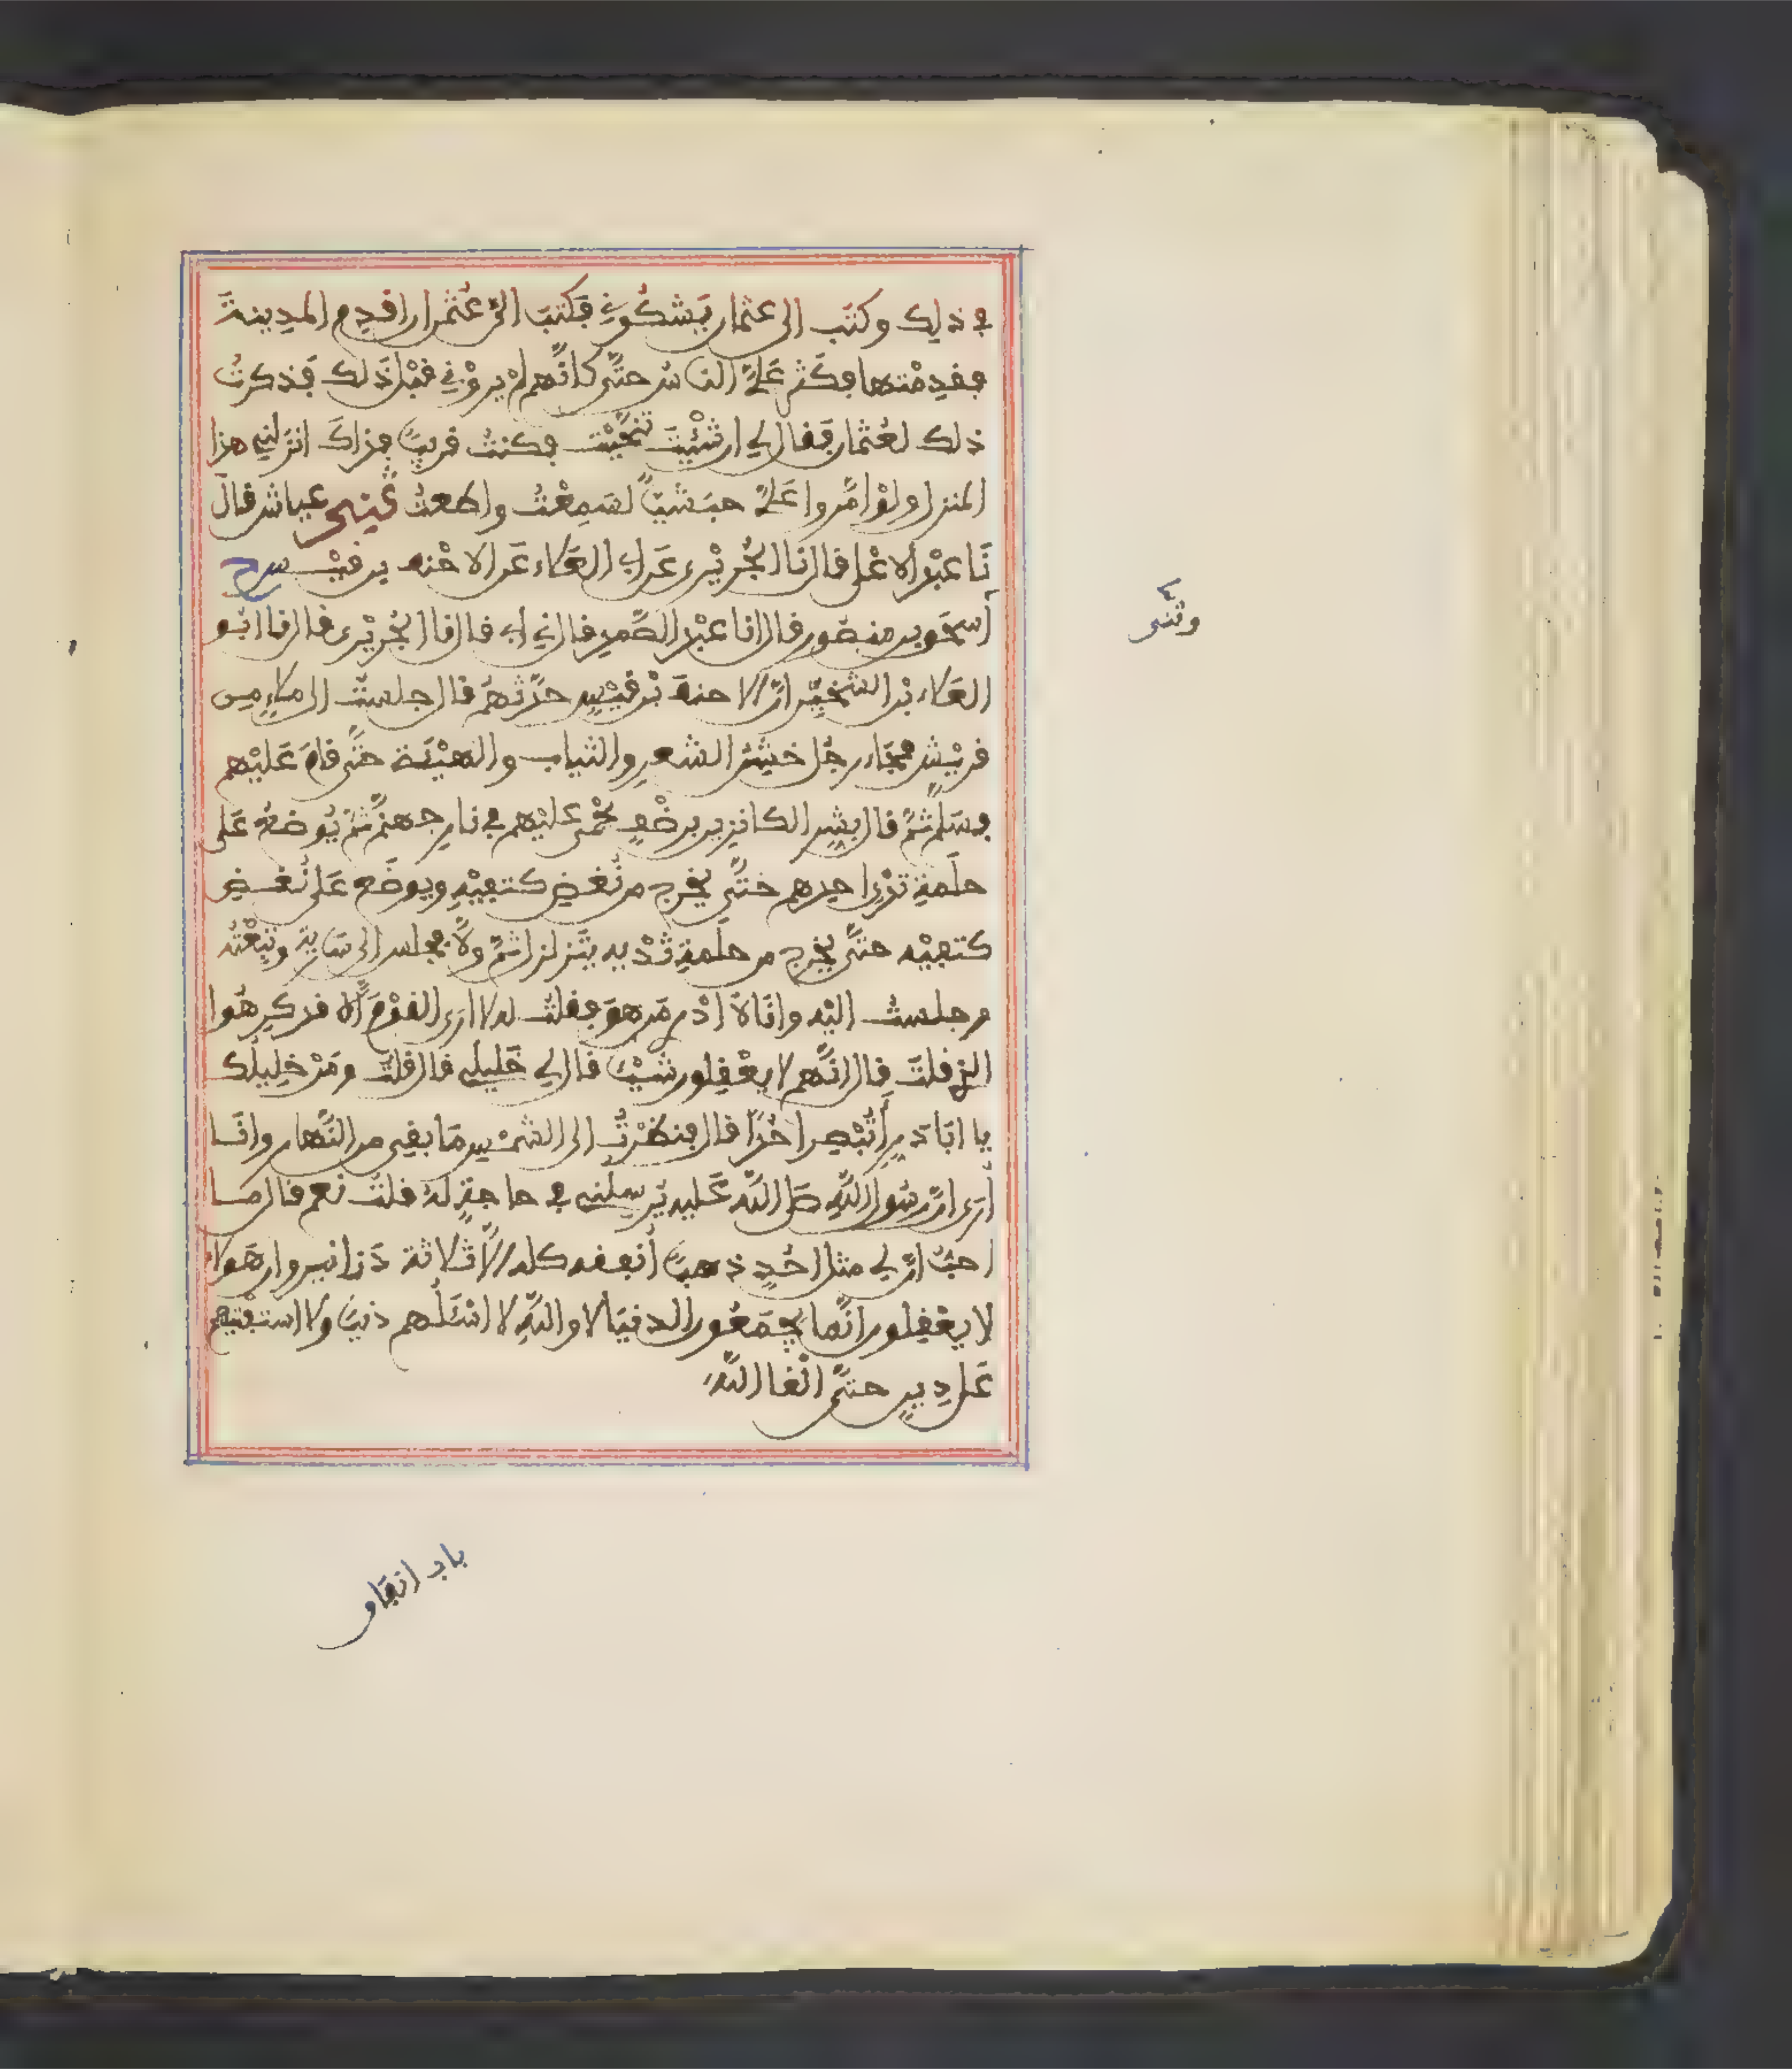 في ذلك وكتب الى عثمان يشكوني فكتب الي عثمن ان اقدم المدينة
فقدمتها فكثر علي الناس حتى كانهم لم يروني قبل ذلك فذكرت
ذلك لعثمان فقال لي ان شئت تنحيت فكنت قريبا فذاك انزلني هذا
المنزل ولو امروا علي حبشيا لسمعت واطعت عياش قال
نا عبد الاعلى قال نا الجريري عن ابي العلاء عن الاحنف بن قيس ح
اسحق بن منصور قال انا عبد الصمد قال ني ابي قال نا الجريري قال نا ابو
العلاء بن الشخير ان الاحنف بن قيس حدثهم قال جلست الى ملاء من
قريش فجاء رجل خشن الشعر والثياب والهيئة حتى قام عليهم
فسلم ثم قال بشر الكانزين برضف يحمى عليهم في نار جهنم ثم يوضع على
حلمة ثدي احدهم حتى يخرج من نغض كتفيه ويوضع على نغض
كتفيه حتى يخرج من حلمة ثدييه يتزلزل ثم ولا فجلس الى سارية وتبعته
وجلست اليه وانا لا ادري من هو فقلت له لا ارى القوم الا قد كرهوا
الذي قلت قال انهم لا يعقلون شيئا قال لي خليلي قال قلت ومن خليلك
يا ابا ذر اتبصر احدا قال فنظرت الى الشمس ما بقي من النهار وانا
ارى ان رسول الله صلى الله عليه يرسلني في حاجة له قلت نعم قال ما
احب ان لي مثل احد ذهبا انفقه كله الا ثلاثة دنانير وان هولاء
لا يعقلون انما يجمعون الدنيا لا والله لا اسئلهم دنيا ولا استفتيهم
عن دين حتى القا الله
وثنى
باب انفاق